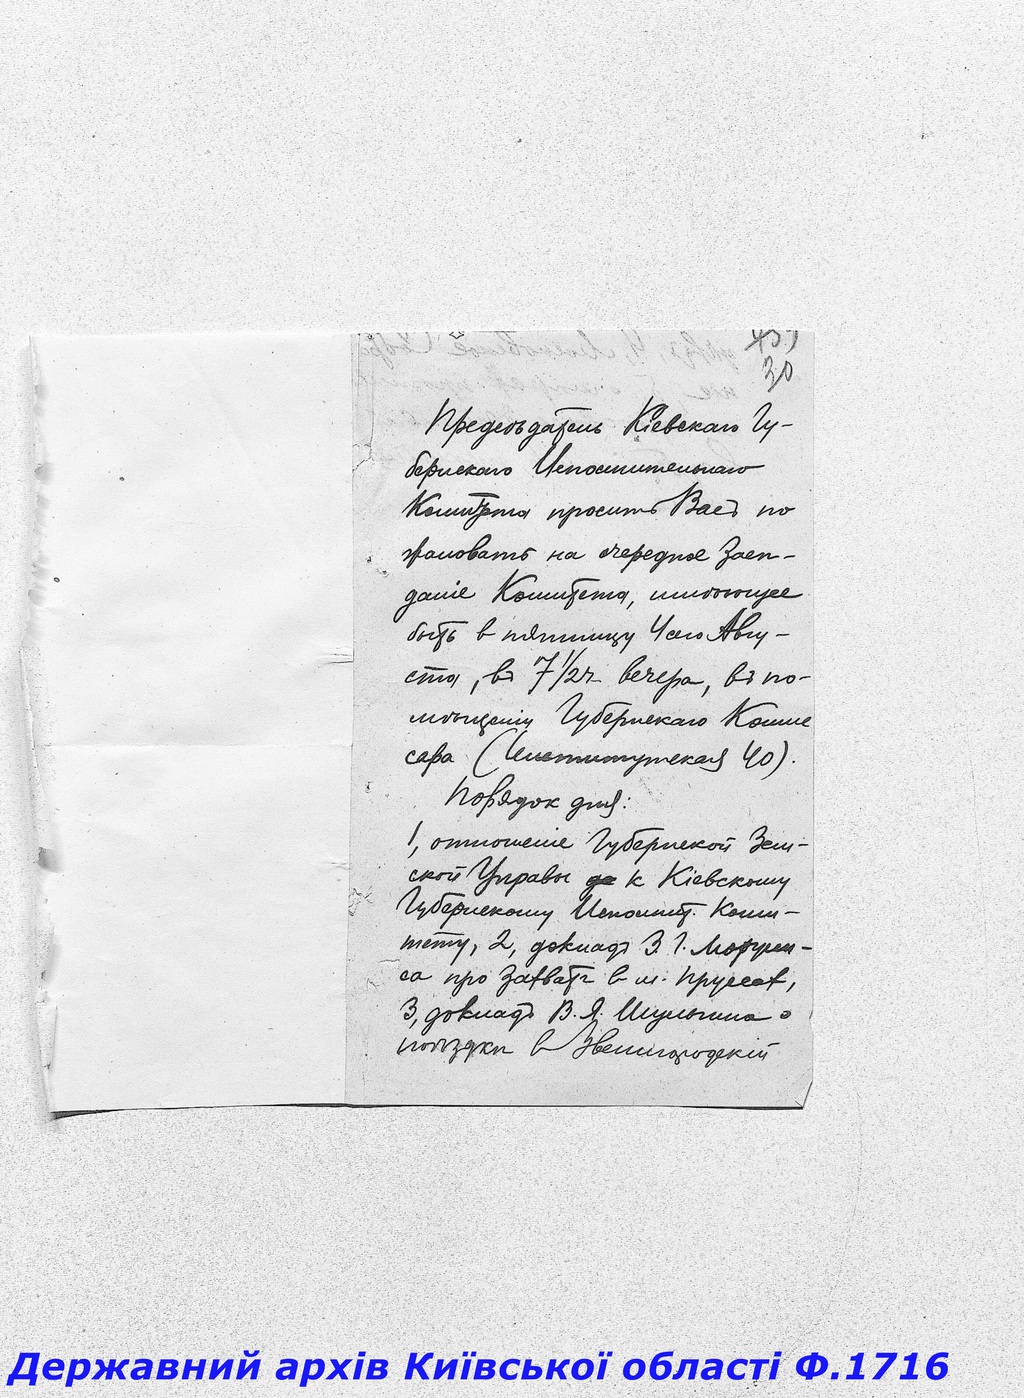 30
Предсѣдатель Кіевскаго Гу-
бернскаго Исполнительнаго
Комитета проситъ Васъ по
жаловать на очередное Засѣ-
даніе Комитета, имѣющее
быть в пятницу 4го Авгу-
ста, въ 7 1/2 ч вечера, въ по-
мѣщеніи Губернскаго Комис
сара (Институтская 40).
Порядок дня:
1, отношеніе Губернской Зем-
ской Управы к Кіевскому
Губернскому Исполнит. Коми-
тету, 2, докладъ З. Г.
са про Захватъ в м.
3, докладъ В. Я. Шульгина о
поѣздки в Звенигородскій
Державний архів Київської області Ф.1716